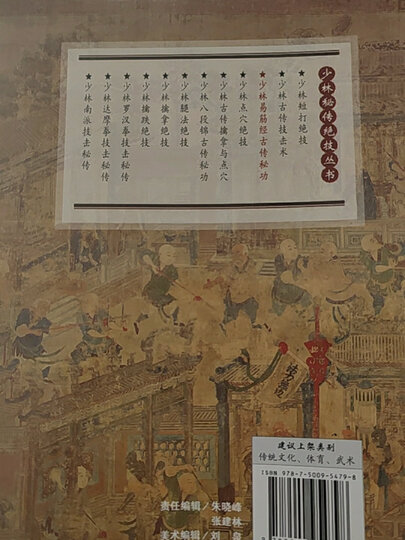 少林秘传绝技丛书
★少林短打绝技
★少林古传技击术
★少林易筋经古传秘功
★少林点穴绝技
★少林古传擒拿与点穴
★少林八段锦古传秘功
★少林腿法绝技
★少林擒拿绝技
★少林擒跌绝技
★少林罗汉拳技击秘传
★少林达摩拳技击秘传
★少林南派技击秘传
建议上架类别
传统文化、体育、武术
ISBN 978-7-5009-5479-8
责任编辑/朱晓峰
张建林
美术编辑/刘